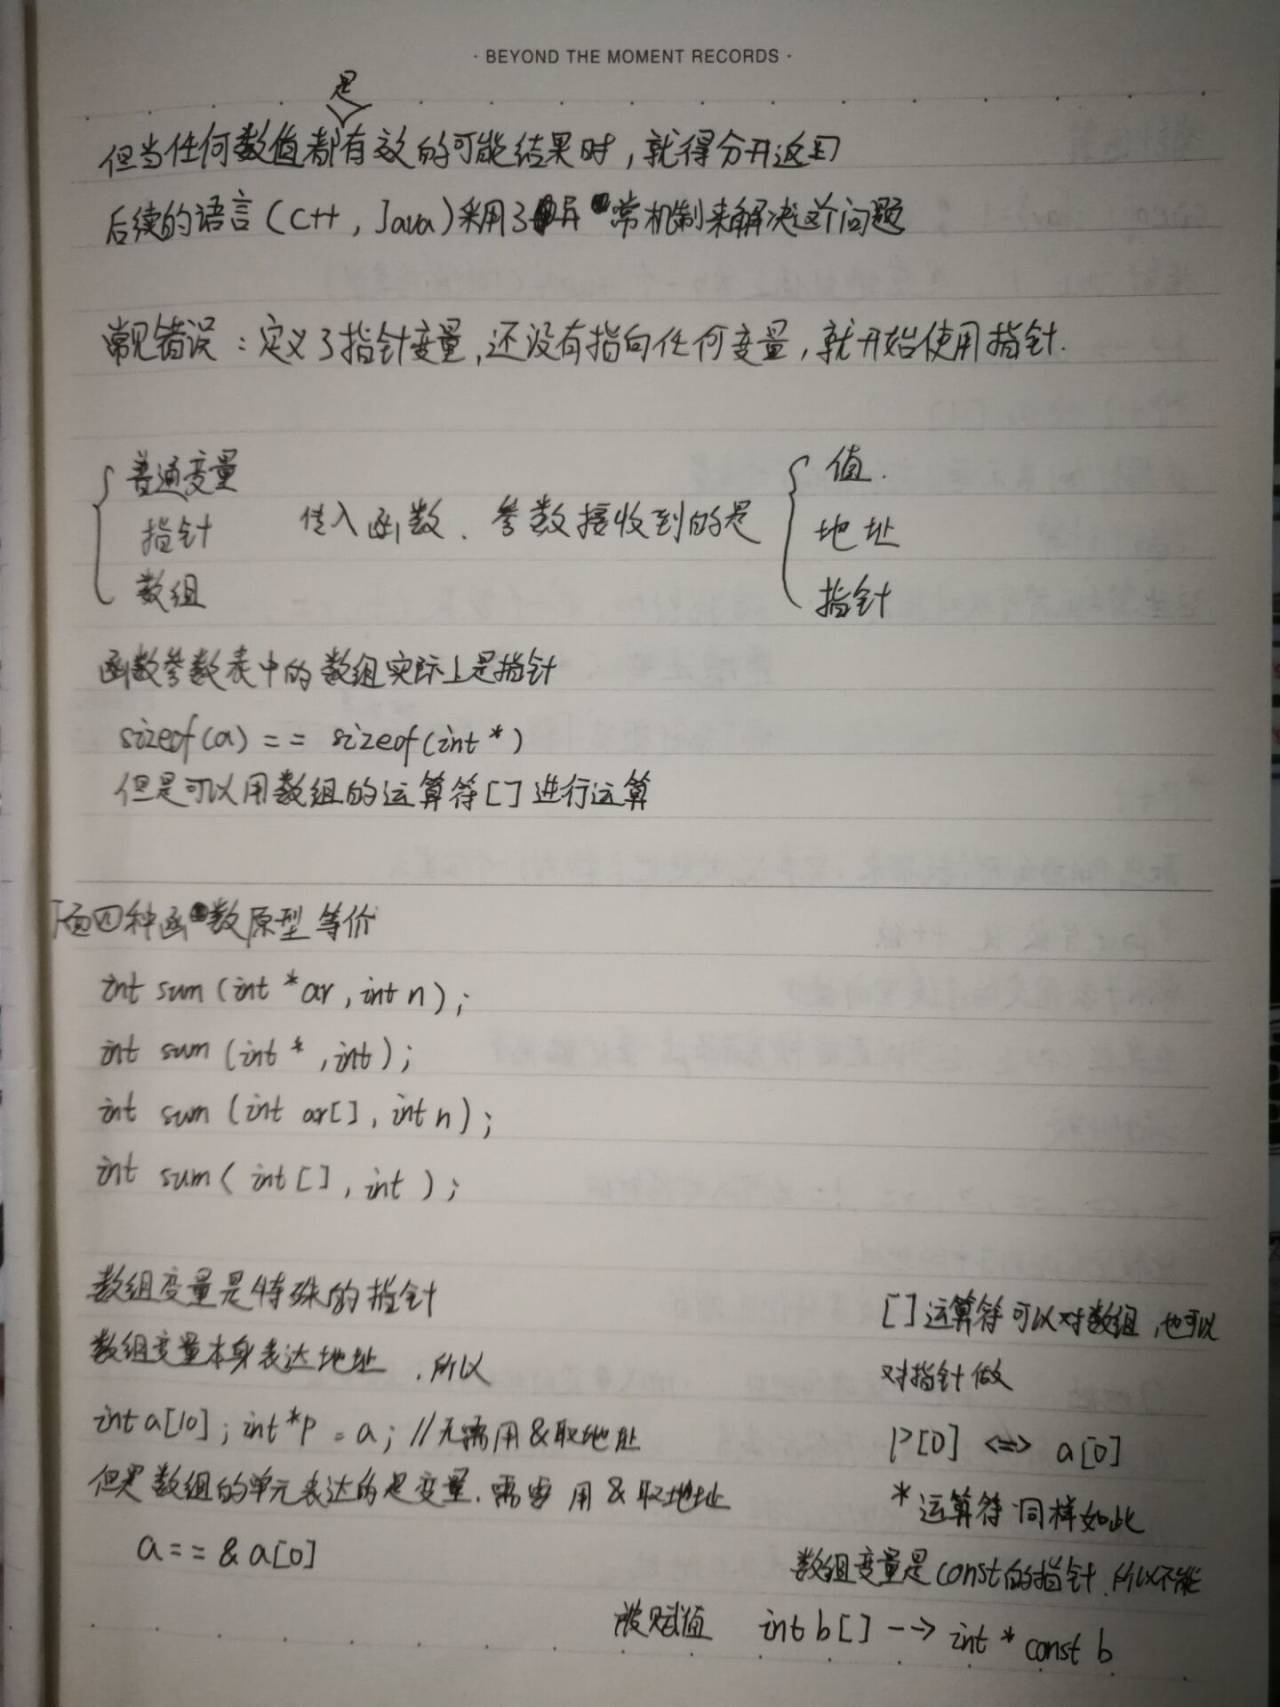 · BEYOND THE MOMENT RECORDS ·
但当任何数值都是有效的可能结果时，就得分开返回
后续的语言（C++，Java）采用了异常机制来解决这个问题
常见错误：定义了指针变量，还没有指向任何变量，就开始使用指针.
普通变量
指针
数组
传入函数、参数接收到的是
值.
地址
指针
函数参数表中的数组实际上是指针
sizeof(a) == sizeof(int*)
但是可以用数组的运算符[]进行运算
下面四种函数原型等价
int sum (int *ar, int n);
int sum (int *, int);
int sum (int ar[], int n);
int sum ( int [], int );
数组变量是特殊的指针
数组变量本身表达地址，所以
int a[10]; int *p = a; //无需用&取地址
但是数组的单元表达的是变量，需要用&取地址
a == &a[0]
[]运算符可以对数组，也可以
对指针做
P[0] <=> a[0]
*运算符同样如此
数组变量是const的指针，所以不能
被赋值 int b[] --> int * const b